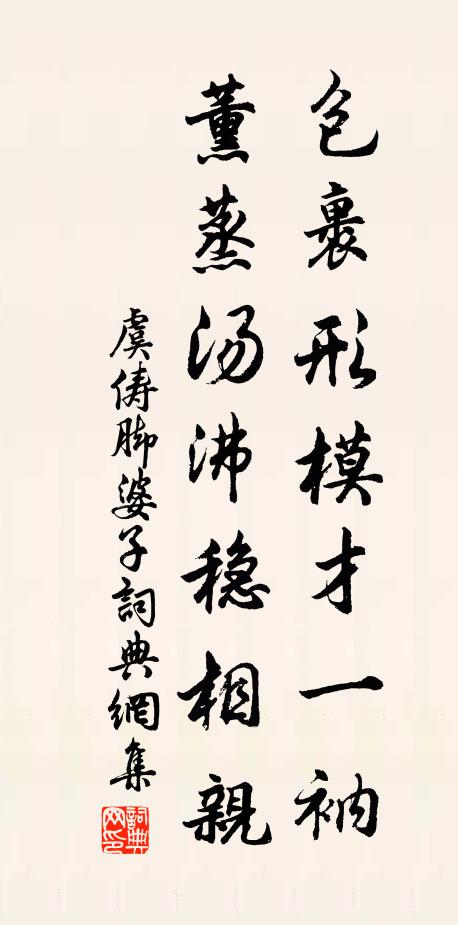 包裹形模才一衲
薰蒸汤沸稳相親
虞俦脚婆子詞典網集
詞典网印